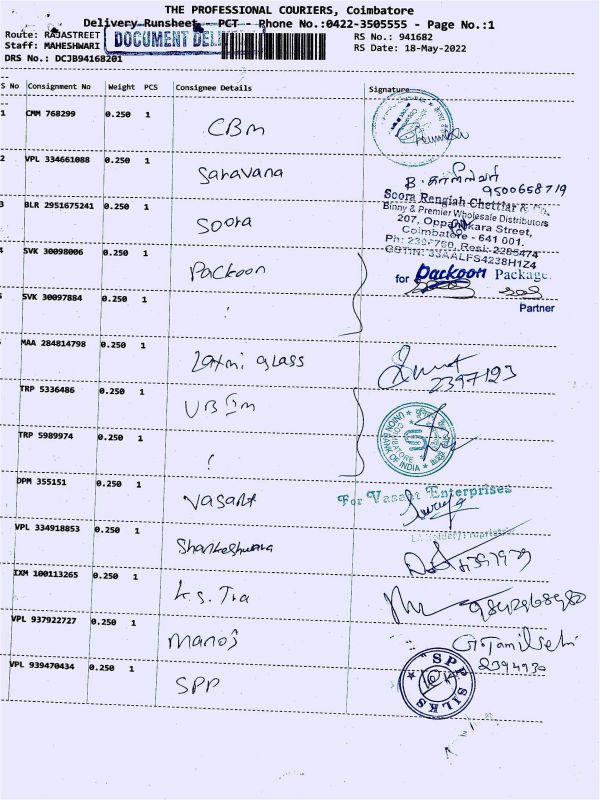 THE PROFESSIONAL COURIERS, Coimbatore
Delivery Runsheet - PCT - Phone No.:0422-3505555 - Page No.:1
Route: RAJASTREET
DOCUMENT DEL
RS No.: 941682
Staff: MAHESHWARI
RS Date: 18-May-2022
DRS No.: DCJB94168201
S No Consignment No Weight PCS Consignee Details Signature
1 CMM 768299 0.250 1 CBM
2 VPL 334661088 0.250 1 Saravana
B. 9500658719
3 BLR 2951675241 0.250 1 Soora
Soora Rengiah Chettiar & Co,
Binny & Premier Wholesale Distributors
207, Oppanakara Street,
Coimbatore - 641 001.
4 SVK 30098006 0.250 1 Packoon
for Packoon Package
Partner
5 SVK 30097884 0.250 1
MAA 284814798 0.250 1 Laxmi Glass
2397193
TRP 5336486 0.250 1 UBIm
UNION BANK OF INDIA
COIMBATORE
TRP 5989974 0.250 1
DPM 355151 0.250 1 Vasant
For Vasant Enterprises
VPL 334918853 0.250 1 Shankeshwara
IXM 100113265 0.250 1 K.S. Tra
9842968982
VPL 937922727 0.250 1 Manoj
G. Tamilselvi
2394930
VPL 939470434 0.250 1 SPP
SPP SILKS